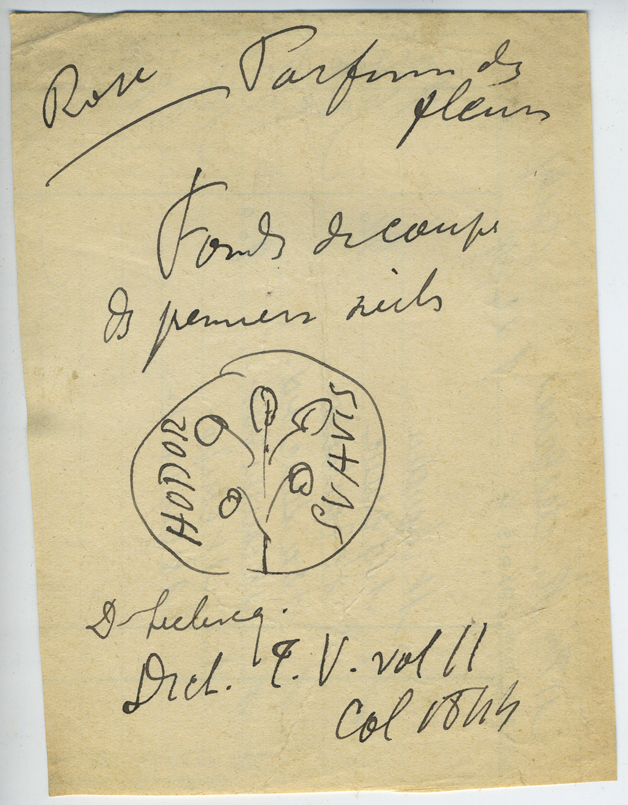 Rose Parfum des
fleurs
Fonds de coupe
ds premiers siècls
HODOR SVAVIS
D. Leclercq.
Dict. T. V. vol II
Col 1844